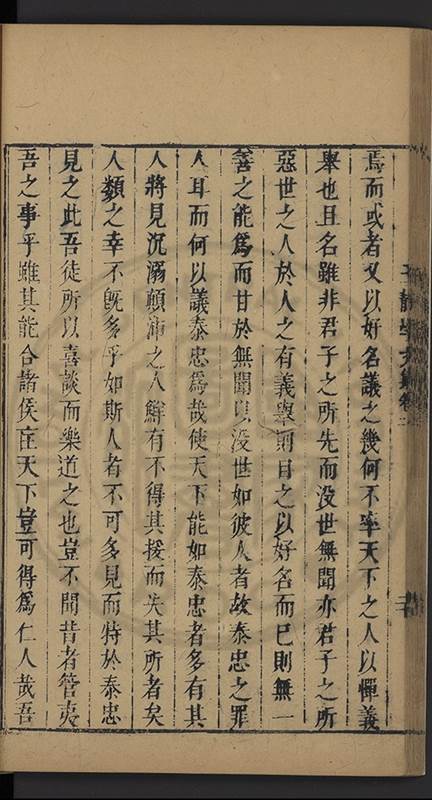 焉而或者又以好名議之幾何不率天下之人以憚義
舉也且名雖非君子之所先而没世無聞亦君子之所
惡世之人於人之有義舉則目之以好名而已則無一
善之能爲而甘於無聞以没世如彼人者故泰忠之罪
人耳而何以議泰忠爲哉使天下能如泰忠者多有其
人將見沉溺顛沛之人鮮有不得其援而失其所者矣
人類之幸不旣多乎如斯人者不可多見而特於泰忠
見之此吾徒所以喜談而樂道之也豈不聞昔者管夷
吾之事乎雖其能合諸侯匡天下豈可得爲仁人哉吾